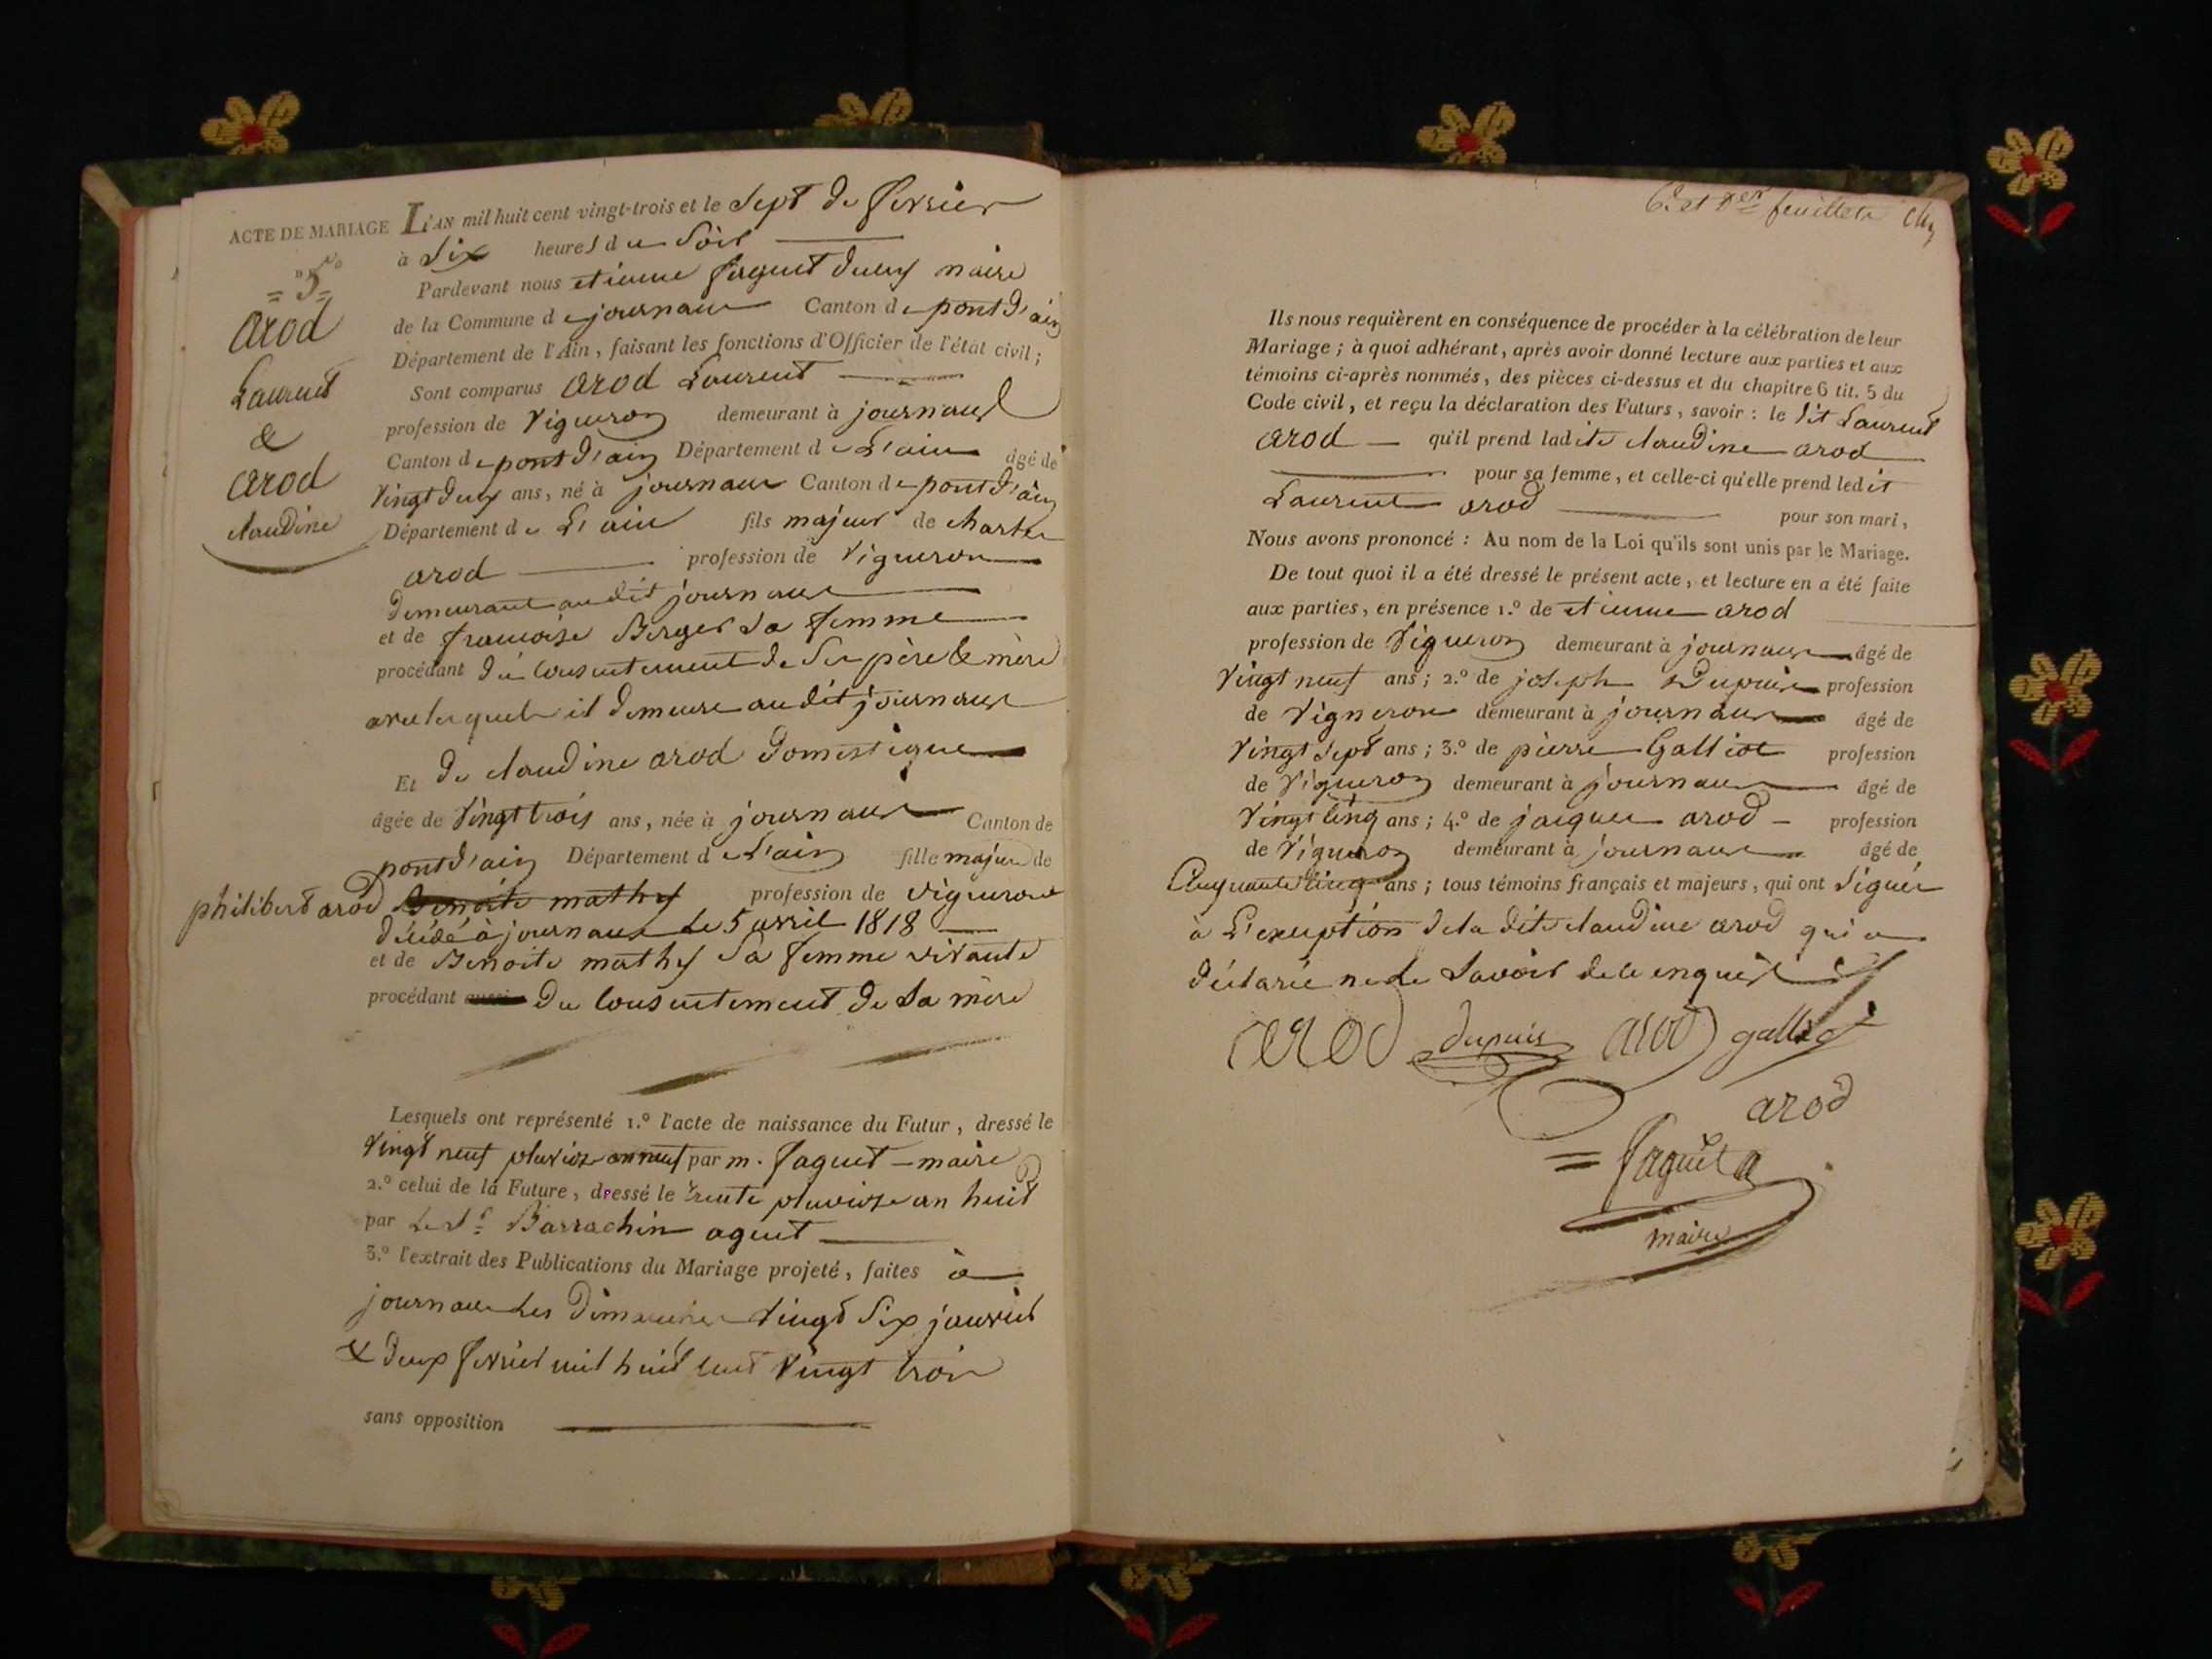 ACTE DE MARIAGE
N.o
= 5 =
arod
Laurent
&
arod
claudine
L'AN mil huit cent vingt-trois et le Sept de fevrier
à Six heures du Soir
Pardevant nous etienne faguet Ducry maire
de la Commune de journaux Canton de pont d'ain
Département de l'Ain, faisant les fonctions d'Officier de l'état civil;
Sont comparus arod Laurent
profession de Vigneron demeurant à journaux
Canton de pont d'ain Département de L'ain âgé de
Vingt deux ans, né à journaux Canton de pont d'ain
Département de L'ain fils majeur de charles
arod profession de Vigneron
demeurant audit journaux
et de francoise Berger Sa femme
procédant du consentement de Ses père & mère
avec lesquels il demeure audit journaux
Et de claudine arod domestique
âgée de Vingt trois ans, née à journaux Canton de
pont d'ain Département de L'ain fille majeure de
philibert arod Benoite mathy profession de vigneron
décédé à journaux le 5 avril 1818
et de Benoite mathy Sa femme vivante
procédant aussi du consentement de Sa mère
Lesquels ont représenté 1.º l'acte de naissance du Futur, dressé le
Vingt neuf pluviose an neuf par m. faguet maire
2.º celui de la Future, dressé le trente pluviose an huit
par le Sr Barrachin agent
3.º l'extrait des Publications du Mariage projeté, faites à
journaux les dimanches Vingt Six janvier
& deux fevrier mil huit cent Vingt trois
sans opposition
6.e et der feuillets
Ils nous requièrent en conséquence de procéder à la célébration de leur
Mariage; à quoi adhérant, après avoir donné lecture aux parties et aux
témoins ci-après nommés, des pièces ci-dessus et du chapitre 6 tit. 5 du
Code civil, et reçu la déclaration des Futurs, savoir : le dit Laurent
arod qu'il prend ladite claudine arod
pour sa femme, et celle-ci qu'elle prend ledit
Laurent arod pour son mari,
Nous avons prononcé : Au nom de la Loi qu'ils sont unis par le Mariage.
De tout quoi il a été dressé le présent acte, et lecture en a été faite
aux parties, en présence 1.º de etienne arod
profession de Vigneron demeurant à journaux âgé de
Vingt neuf ans; 2.º de joseph Dupuis profession
de Vigneron demeurant à journaux âgé de
Vingt Sept ans; 3.º de pierre Galliot profession
de Vigneron demeurant à journaux âgé de
Vingt cinq ans; 4.º de jacques arod profession
de Vigneron demeurant à journaux âgé de
Cinquante cinq ans; tous témoins français et majeurs, qui ont Signés
à L'exception de la dite claudine arod qui a
déclaré ne le Savoir de ce enquis
arod dupuis arod galliot
arod
= faguet
maire